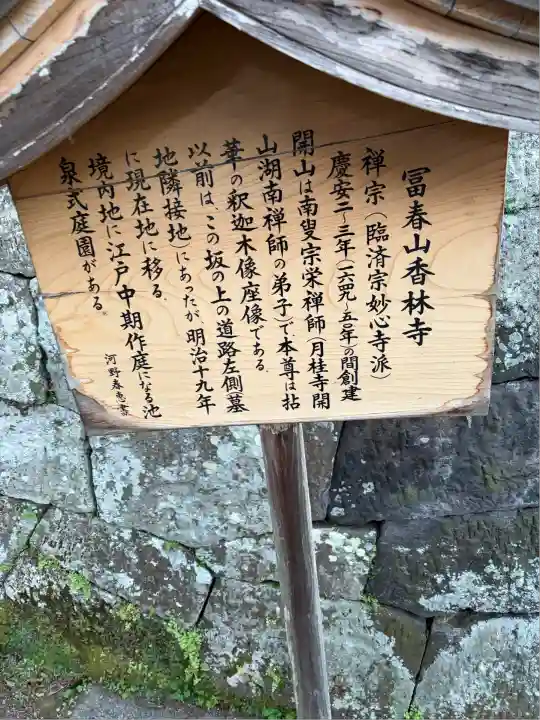 冨春山香林寺
禅宗(臨済宗妙心寺派)
慶安二~三年(一六四九~五〇年の間創建
開山は南叟宗栄禅師(月桂寺開
山湖南禅師の弟子)で本尊は拈
華の釈迦木像座像である。
以前は、この坂の上の道路左側墓
地隣接地にあったが、明治十九年
に現在地に移る。
境内地に江戸中期作庭になる池
泉式庭園がある。
河野春恵書